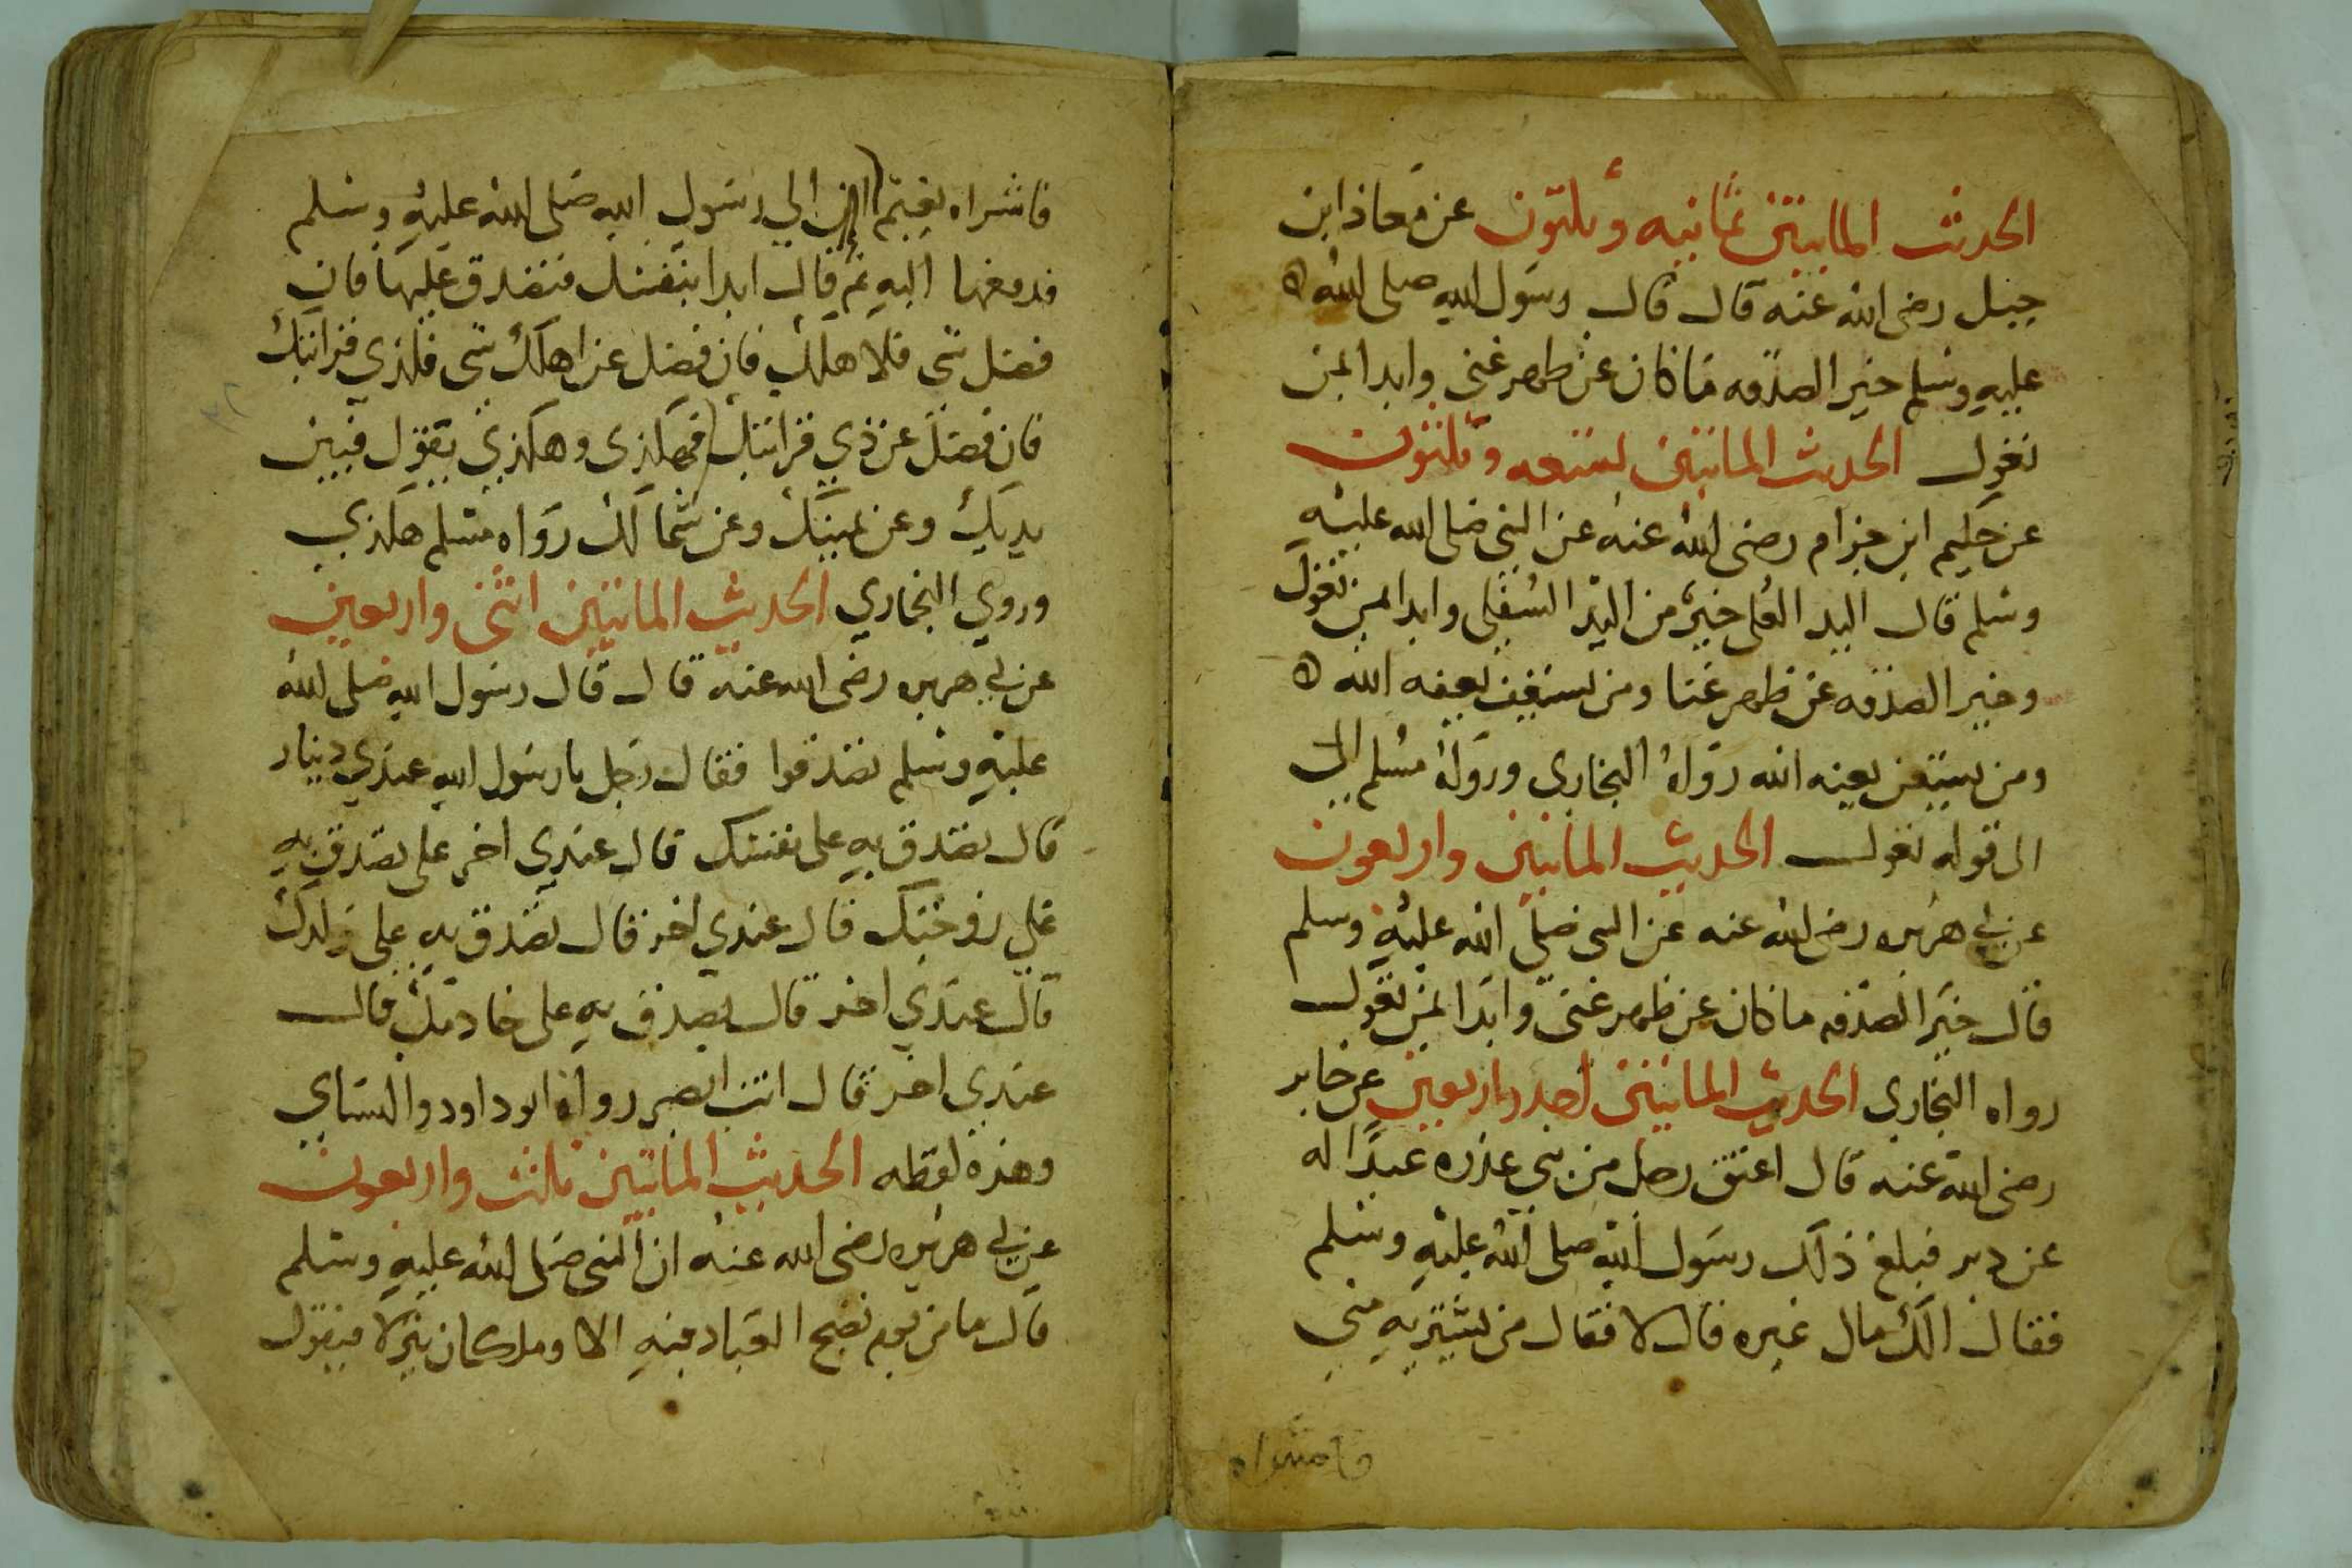 الحديث الماىيتين ثمانيه وثلثون عن معاذ ابن
جبل رضى الله عنه قال قال رسول الله صلى الله ه
عليه وسلم خير الصدقه ما كان عن ظهر غنى وابدا بمن
تعول الحديث الماتين لستعه وثلثون
عن حكيم ابن حزام رضى الله عنه عن النبي صلى الله عليه
وسلم قال اليد العلى خير من اليد السفلى وابدا بمن تعول
وخير الصدقه عن ظهر غنا ومن يستعفف يعفه الله ه
ومن يستغن يغنه الله رواه البخارى ورواه مسلم الى
الى قوله تعول الحديث الماتين واربعون
عن ابي هريره رضى الله عنه عن النبي صلى الله عليه وسلم
قال خير الصدقه ما كان عن ظهر غنى وابدا بمن تعول
رواه البخارى الحديث الماتين احد واربعين عن جابر
رضى الله عنه قال اعتق رجل من بني عذره عبدا له
عن دبر فبلغ ذلك رسول الله صلى الله عليه وسلم
فقال الك مال غيره قال لا فقال من يشتريه مني
فاشراه
فاشراه نعيم الى رسول الله صلى الله عليه وسلم
فدفعها اليه ثم قال ابدا بنفسك فتصدق عليها فان
فضل شى فلاهلك فان فضل عن اهلك شى فلذي قرابتك
فان فضل عن ذي قرابتك فهكذى وهكذي يقول فبين
يديك وعن يمينك وعن شمالك رواه مسلم هكذي
وروي البخاري الحديث الماتين اثنى واربعين
عن ابي هريره رضى الله عنه قال قال رسول الله صلى الله
عليه وسلم تصدقوا فقال رجل يارسول الله عندي دينار
قال تصدق به على نفسك قال عندي اخر على تصدق به
على زوجتك قال عندي اخر قال تصدق به على ولدك
قال عندي اخر قال تصدق به على خادمك قال
عندي اخر قال انت ابصر رواه ابو داود والنساي
وهذه لفظه الحديث الماتين ثالث واربعون
عن ابي هريره رضى الله عنه ان النبي صلى الله عليه وسلم
قال ما من يوم تصبح العباد فيه الا وملكان ينزلا فيقول